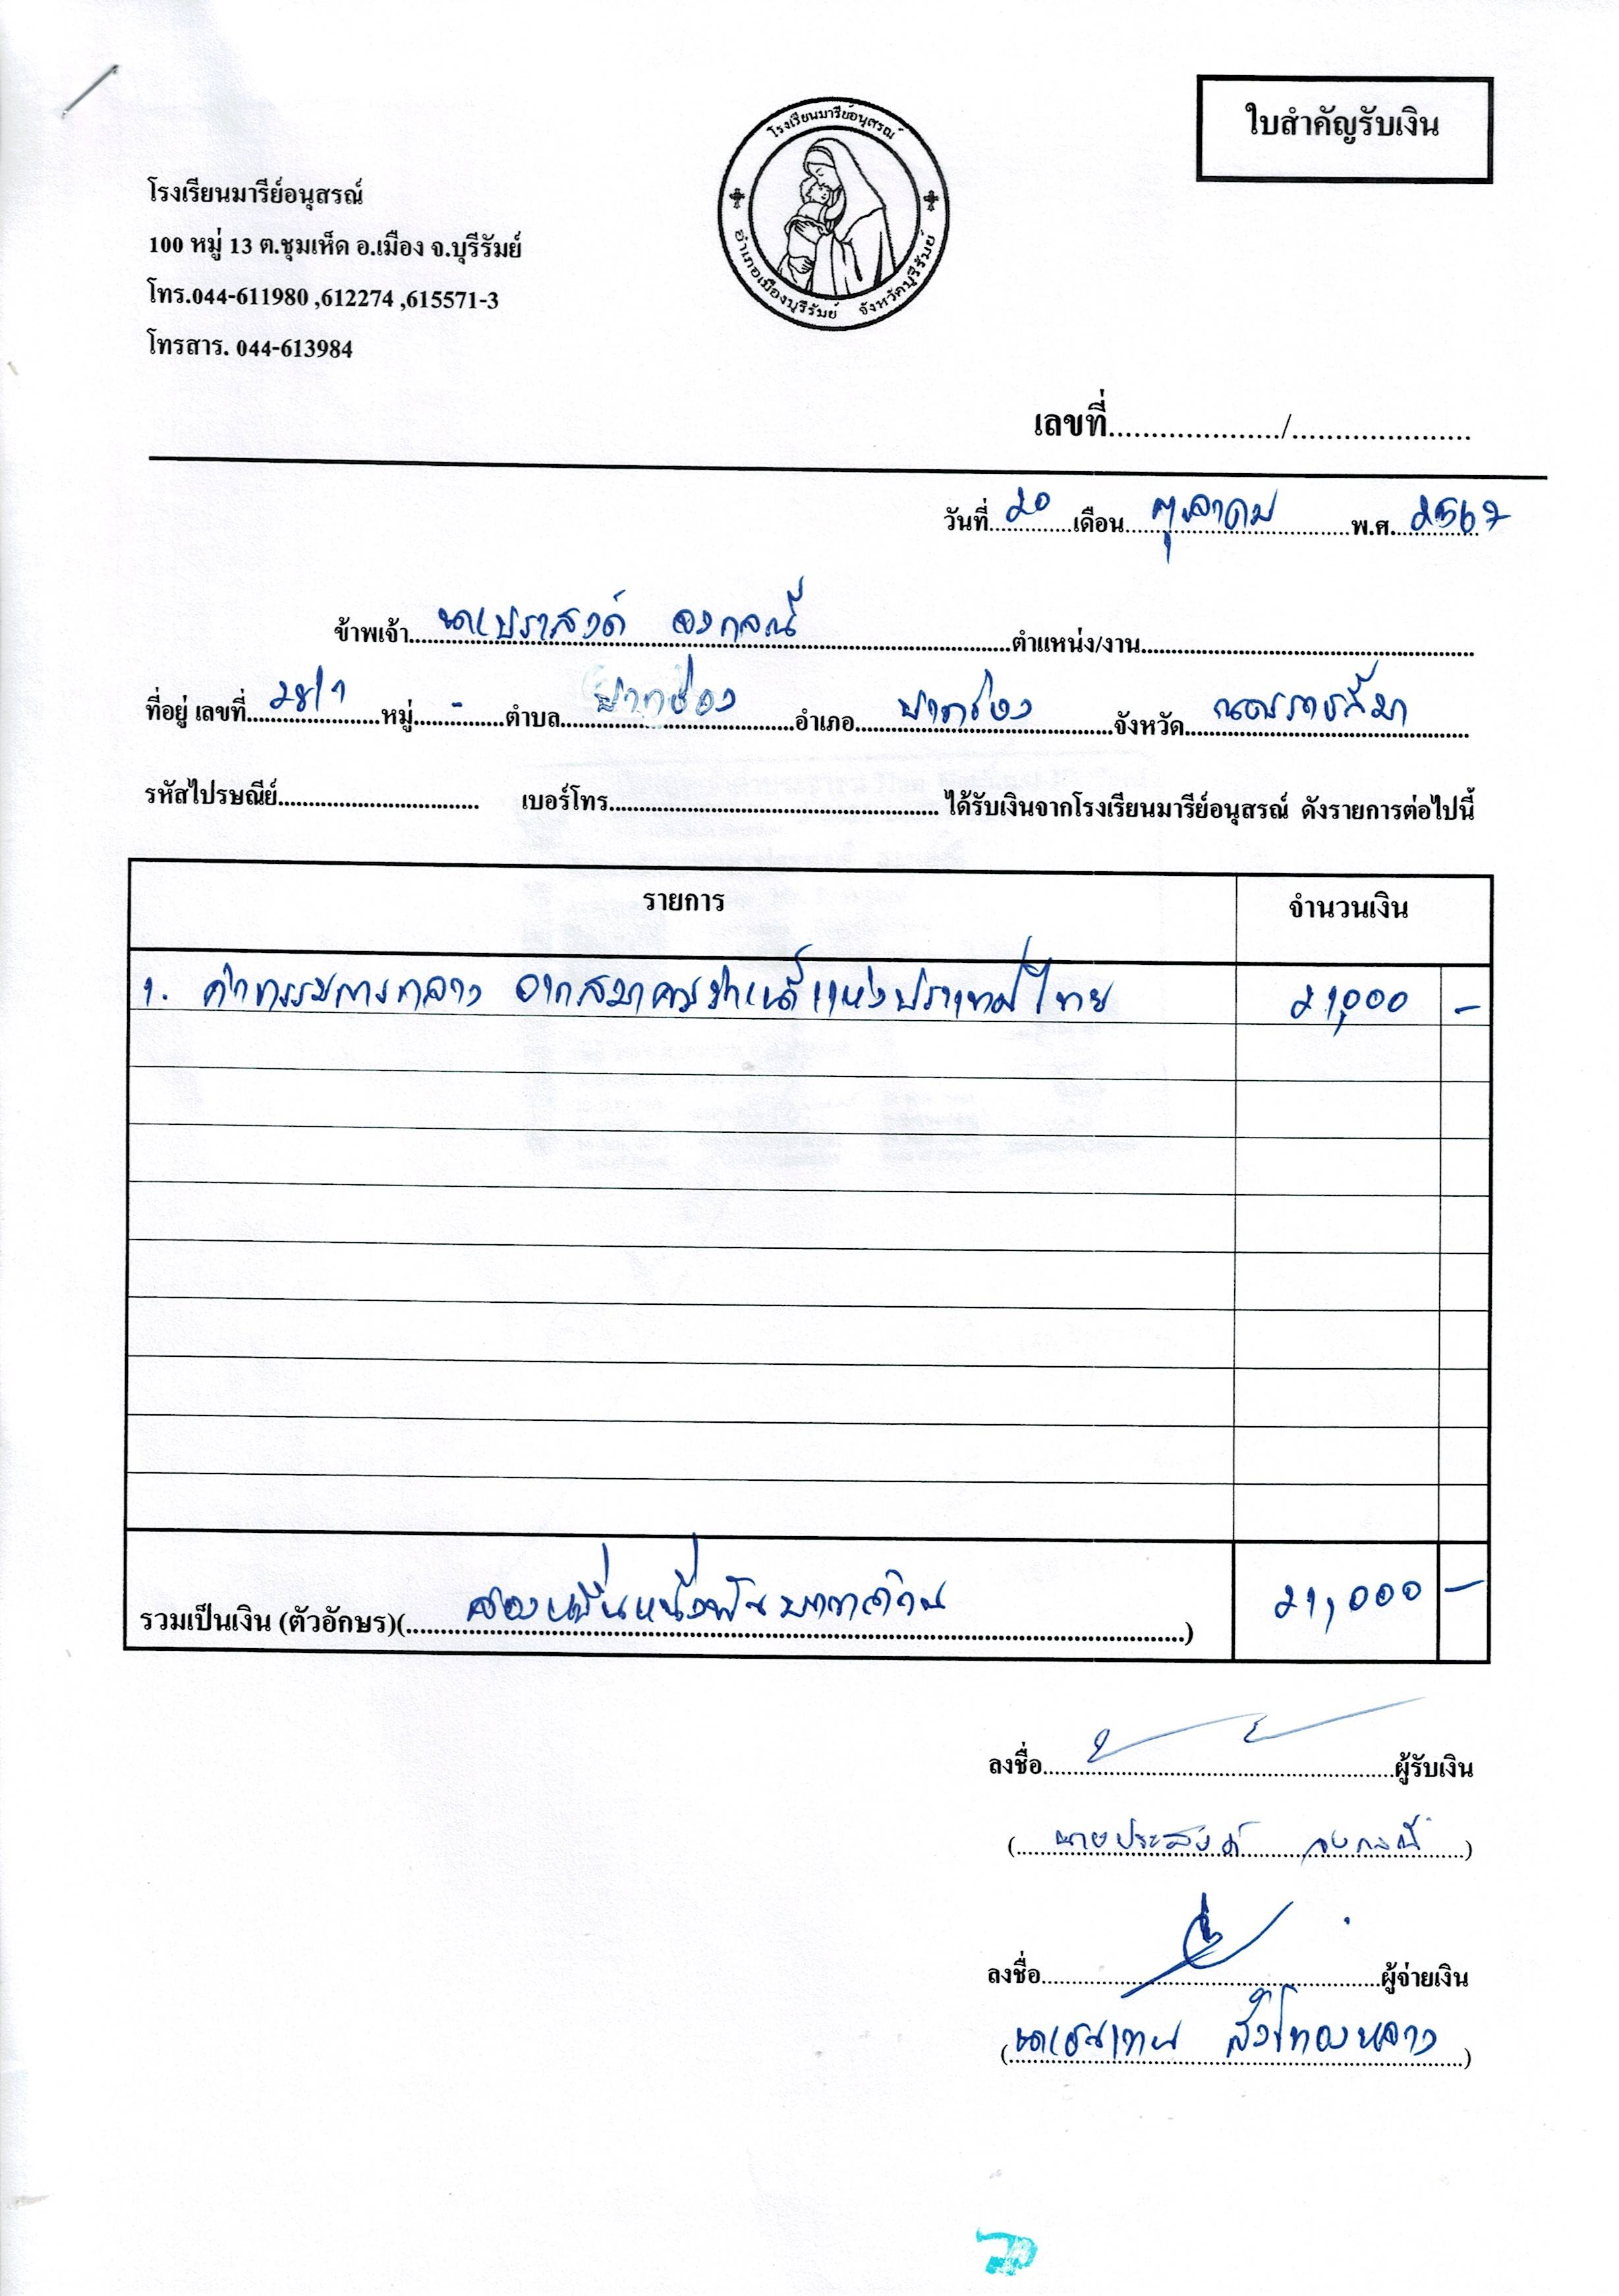 ใบสำคัญรับเงิน
โรงเรียนมารีย์อนุสรณ์
อำเภอเมืองบุรีรัมย์ จังหวัดบุรีรัมย์
โรงเรียนมารีย์อนุสรณ์
100 หมู่ 13 ต.ชุมเห็ด อ.เมือง จ.บุรีรัมย์
โทร.044-611980 ,612274 ,615571-3
โทรสาร. 044-613984
เลขที่..................../.....................
วันที่ 20 เดือน ตุลาคม พ.ศ. 2567
ข้าพเจ้า นายประสงค์ องกลณี ตำแหน่ง/งาน
ที่อยู่ เลขที่ 28/1 หมู่ - ตำบล ปากช่อง อำเภอ ปากช่อง จังหวัด นครราชสีมา
รหัสไปรษณีย์ เบอร์โทร ได้รับเงินจากโรงเรียนมารีย์อนุสรณ์ ดังรายการต่อไปนี้
รายการ จำนวนเงิน
1. ค่ากรรมการกลาง จากสมาคมว่ายน้ำแห่งประเทศไทย 21,000 -
รวมเป็นเงิน (ตัวอักษร)( สองหมื่นหนึ่งพันบาทถ้วน ) 21,000 -
ลงชื่อ ผู้รับเงิน
( นายประสงค์ )
ลงชื่อ ผู้จ่ายเงิน